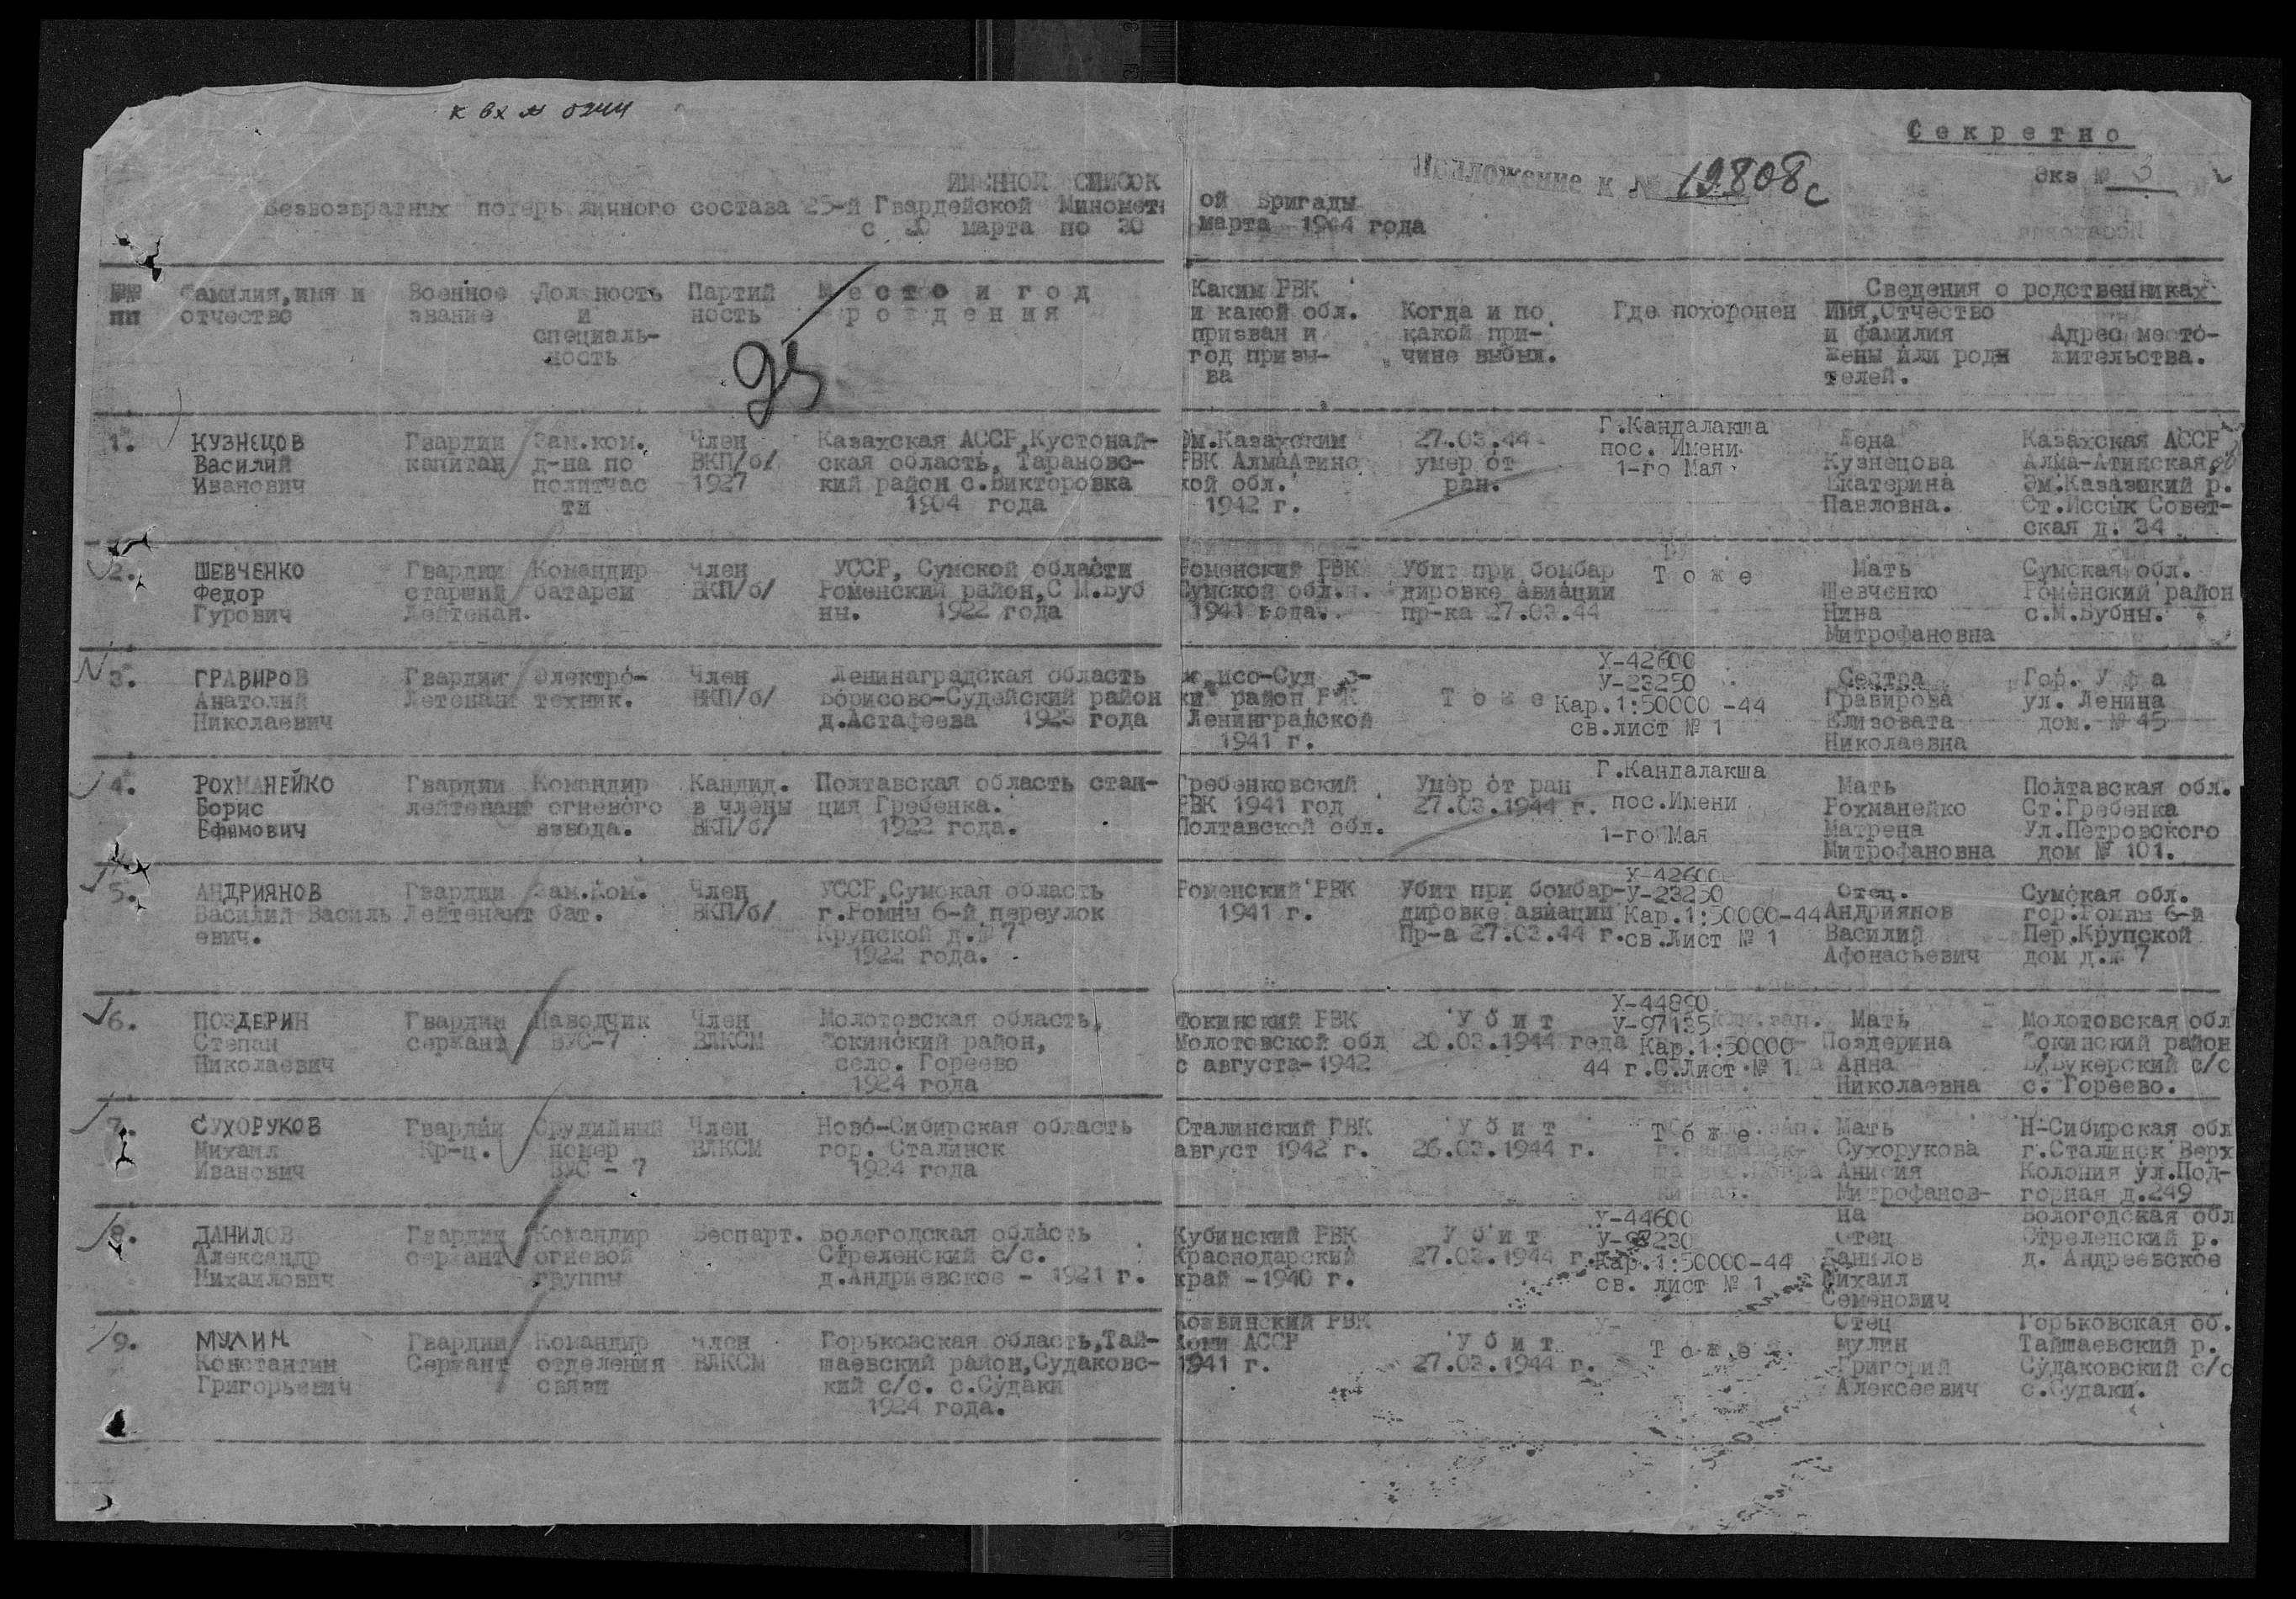 к вх №
Секретно
Приложение к № 19808с
Экз № 3
ИМЕННОЙ СПИСОК
Безвозвратных потерь личного состава 25-й Гвардейской Миномет ой Бригады
с 20 марта по 30 марта 1944 года
№№ пп
Фамилия,имя и отчество
Военное звание
Должность и специаль- ность
Партий ность
Место и год рождения
Каким РВК и какой обл. призван и год призы- ва
Когда и по какой при- чине выбыл.
Где похоронен
Сведения о родственниках
Имя,Отчество и фамилия жены или роди телей.
Адрес место- жительства.
1.
КУЗНЕЦОВ Василий Иванович
Гвардии капитан
Зам.ком. д-на по политчас ти
Член ВКП/б/ 1927
Казахская АССР,Кустонай- ская область, Тарановс- кий район с.Викторовка 1904 года
Эм.Казахским РВК АлмаАтинс кой обл. 1942 г.
27.03.44 умер от ран.
Г.Кандалакша пос. Имени 1-го Мая
Жена Кузнецова Екатерина Павловна.
Казахская АССР Алма-Атинская Эм.Казазикий р. Ст.Иссык Совет- ская д. 34
2.
ШЕВЧЕНКО Федор Гурович
Гвардии старший Лейтенан.
Командир батареи
Член ВКП/б/
УССР, Сумской области Роменский район,С М.Буб ны. 1922 года
Роменский РВК Сумской обл. 1941 года.
Убит при бомбар дировке авиации пр-ка 27.03.44
Тоже
Мать Шевченко Нина Митрофановна
Сумская обл. Роменский район с.М.Бубны.
3.
ГРАВИРОВ Анатолий Николаевич
Гвардии Летенант
Электро- техник.
Член ВКП/б/
Ленинаградская область Борисово-Судейский район д.Астафеева 1923 года
ки район РВК Ленинградской 1941 г.
Тоже
Х-42600 У-23250 Кар.1:50000 -44 св.лист № 1
Сестра Гравирова Елизовата Николаевна
Гор. Уфа ул. Ленина дом. № 45
4.
РОХМАНЕЙКО Борис Ефимович
Гвардии лейтенант
Командир огневого взвода.
Кандид. в члены ВКП/б/
Полтавская область стан- ция Гребенка. 1922 года.
Гребенковский РВК 1941 год Полтавской обл.
Умер от ран 27.03.1944 г.
Г.Кандалакша пос.Имени 1-го Мая
Мать Рохманейко Матрена Митрофановна
Полтавская обл. Ст.Гребенка Ул.Петровского дом № 101.
5.
АНДРИЯНОВ Василий Василь евич.
Гвардии Лейтенант
Зам.Ком. бат.
Член ВКП/б/
УССР,Сумская область г.Ромны 6-й переулок Крупской д.№ 7 1922 года.
Роменский РВК 1941 г.
Убит при бомбар- дировке авиации Пр-а 27.03.44 г.
Х-42600 У-23250 Кар.1:50000-44 св.Лист № 1
Отец. Андриянов Василий Афонасьевич
Сумская обл. гор.Ромны 6-й Пер.Крупской дом д.№ 7
6.
ПОЗДЕРИН Степан Николаевич
Гвардии сержант
Наводчик ВУС-7
Член ВЛКСМ
Молотовская область, Фокинский район, село. Гореево 1924 года
Фокинский РВК Молотовской обл с августа-1942
Убит 20.03.1944 года
Х-44890 У-97135 Кар.1:50000- 44 г.С.Лист № 1
Мать Поздерина Анна Николаевна
Молотовская обл Фокинский район Б/Букерский с/с с. Гореево.
7.
СУХОРУКОВ Михаил Иванович
Гвардии Кр-ц.
Орудийный номер ВУС - 7
Член ВЛКСМ
Ново-Сибирская область гор. Сталинск 1924 года
Сталинский РВК август 1942 г.
Убит 26.03.1944 г.
Тоже
Мать Сухорукова Анисия Митрофанов- на
Н-Сибирская обл г.Сталинск Верх Колония ул.Под- горная д.249
8.
ДАНИЛОВ Александр Михаилович
Гвардии сержант
Командир огневой группы
Беспарт.
Вологодская область Стреленский с/с. д.Андриевское - 1921 г.
Кубинский РВК Краснодарский край -1940 г.
Убит 27.03.1944 г.
У-44600 Кар.1:50000-44 св. лист № 1
Отец Данилов Михаил Семенович
Вологодская обл Стреленский р. д. Андреевское
9.
МУЛИН Константин Григорьевич
Гвардии Сержант
Командир отделения связи
Член ВЛКСМ
Горьковская область,Тай- шаевский район,Судаковс- кий с/с. с.Судаки 1924 года.
Кожвинский РВК Коми АССР 1941 г.
Убит 27.03.1944 г.
Тоже
Отец Мулин Григорий Алексеевич
Горьковская об. Тайшаевский р. Судаковский с/с с.Судаки.